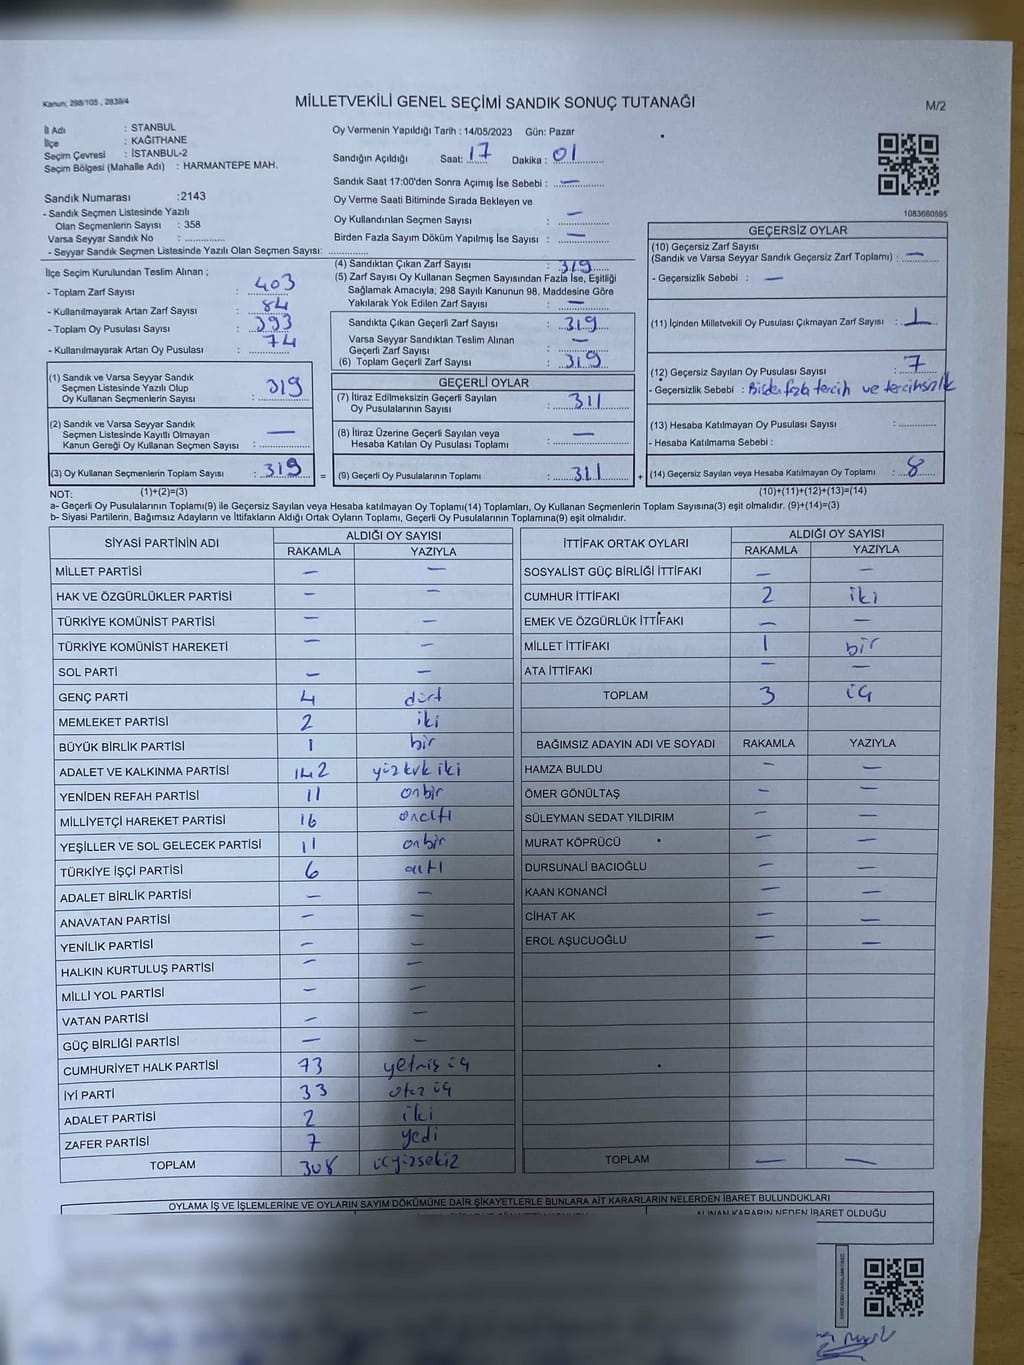 Kanun; 298/105 , 2839/4
MİLLETVEKİLİ GENEL SEÇİMİ SANDIK SONUÇ TUTANAĞI
M/2
İl Adı : STANBUL
İlçe : KAĞITHANE
Seçim Çevresi : İSTANBUL-2
Seçim Bölgesi (Mahalle Adı) : HARMANTEPE MAH.
Sandık Numarası :2143
- Sandık Seçmen Listesinde Yazılı
Olan Seçmenlerin Sayısı : 358
Varsa Seyyar Sandık No :
- Seyyar Sandık Seçmen Listesinde Yazılı Olan Seçmen Sayısı:
Oy Vermenin Yapıldığı Tarih : 14/05/2023 Gün: Pazar
Sandığın Açıldığı Saat: 17 Dakika : 01
Sandık Saat 17:00'den Sonra Açımış İse Sebebi : —
Oy Verme Saati Bitiminde Sırada Bekleyen ve
Oy Kullandırılan Seçmen Sayısı : —
Birden Fazla Sayım Döküm Yapılmış İse Sayısı : —
1083660595
İlçe Seçim Kurulundan Teslim Alınan ;
- Toplam Zarf Sayısı : 403
- Kullanılmayarak Artan Zarf Sayısı : 84
- Toplam Oy Pusulası Sayısı : 393
- Kullanılmayarak Artan Oy Pusulası : 74
(1) Sandık ve Varsa Seyyar Sandık
Seçmen Listesinde Yazılı Olup
Oy Kullanan Seçmenlerin Sayısı : 319
(2) Sandık ve Varsa Seyyar Sandık
Seçmen Listesinde Kayıtlı Olmayan
Kanun Gereği Oy Kullanan Seçmen Sayısı : —
(3) Oy Kullanan Seçmenlerin Toplam Sayısı : 319 =
(4) Sandıktan Çıkan Zarf Sayısı : 319
(5) Zarf Sayısı Oy Kullanan Seçmen Sayısından Fazla İse, Eşitliği
Sağlamak Amacıyla, 298 Sayılı Kanunun 98. Maddesine Göre
Yakılarak Yok Edilen Zarf Sayısı : —
Sandıkta Çıkan Geçerli Zarf Sayısı : 319
Varsa Seyyar Sandıktan Teslim Alınan
Geçerli Zarf Sayısı : —
(6) Toplam Geçerli Zarf Sayısı : 319
GEÇERLİ OYLAR
(7) İtiraz Edilmeksizin Geçerli Sayılan
Oy Pusulalarının Sayısı : 311
(8) İtiraz Üzerine Geçerli Sayılan veya
Hesaba Katılan Oy Pusulası Toplamı : —
(9) Geçerli Oy Pusulalarının Toplamı : 311 +
GEÇERSİZ OYLAR
(10) Geçersiz Zarf Sayısı
(Sandık ve Varsa Seyyar Sandık Geçersiz Zarf Toplamı) : —
- Geçersizlik Sebebi : —
(11) İçinden Milletvekili Oy Pusulası Çıkmayan Zarf Sayısı : 1
(12) Geçersiz Sayılan Oy Pusulası Sayısı : 7
- Geçersizlik Sebebi : Birden fazla tercih ve tercihsizlik
(13) Hesaba Katılmayan Oy Pusulası Sayısı :
- Hesaba Katılmama Sebebi :
(14) Geçersiz Sayılan veya Hesaba Katılmayan Oy Toplamı : 8
NOT: (1)+(2)=(3) (10)+(11)+(12)+(13)=(14)
a- Geçerli Oy Pusulalarının Toplamı(9) ile Geçersiz Sayılan veya Hesaba katılmayan Oy Toplamı(14) Toplamları, Oy Kullanan Seçmenlerin Toplam Sayısına(3) eşit olmalıdır. (9)+(14)=(3)
b- Siyasi Partilerin, Bağımsız Adayların ve İttifakların Aldığı Ortak Oyların Toplamı, Geçerli Oy Pusulalarının Toplamına(9) eşit olmalıdır.
SİYASİ PARTİNİN ADI ALDIĞI OY SAYISI
RAKAMLA YAZIYLA
MİLLET PARTİSİ — —
HAK VE ÖZGÜRLÜKLER PARTİSİ — —
TÜRKİYE KOMÜNİST PARTİSİ — —
TÜRKİYE KOMÜNİST HAREKETİ — —
SOL PARTİ — —
GENÇ PARTİ 4 dört
MEMLEKET PARTİSİ 2 iki
BÜYÜK BİRLİK PARTİSİ 1 bir
ADALET VE KALKINMA PARTİSİ 142 yüz kırk iki
YENİDEN REFAH PARTİSİ 11 onbir
MİLLİYETÇİ HAREKET PARTİSİ 16 onaltı
YEŞİLLER VE SOL GELECEK PARTİSİ 11 onbir
TÜRKİYE İŞÇİ PARTİSİ 6 altı
ADALET BİRLİK PARTİSİ — —
ANAVATAN PARTİSİ — —
YENİLİK PARTİSİ — —
HALKIN KURTULUŞ PARTİSİ — —
MİLLİ YOL PARTİSİ — —
VATAN PARTİSİ — —
GÜÇ BİRLİĞİ PARTİSİ — —
CUMHURİYET HALK PARTİSİ 73 yetmiş üç
İYİ PARTİ 33 otuz üç
ADALET PARTİSİ 2 iki
ZAFER PARTİSİ 7 yedi
TOPLAM 308 üçyüzsekiz
İTTİFAK ORTAK OYLARI ALDIĞI OY SAYISI
RAKAMLA YAZIYLA
SOSYALİST GÜÇ BİRLİĞİ İTTİFAKI — —
CUMHUR İTTİFAKI 2 iki
EMEK VE ÖZGÜRLÜK İTTİFAKI — —
MİLLET İTTİFAKI 1 bir
ATA İTTİFAKI — —
TOPLAM 3 üç
BAĞIMSIZ ADAYIN ADI VE SOYADI RAKAMLA YAZIYLA
HAMZA BULDU — —
ÖMER GÖNÜLTAŞ — —
SÜLEYMAN SEDAT YILDIRIM — —
MURAT KÖPRÜCÜ — —
DURSUNALİ BACIOĞLU — —
KAAN KONANCİ — —
CİHAT AK — —
EROL AŞUCUOĞLU — —
TOPLAM — —
OYLAMA İŞ VE İŞLEMLERİNE VE OYLARIN SAYIM DÖKÜMÜNE DAİR ŞİKAYETLERLE BUNLARA AİT KARARLARIN NELERDEN İBARET BULUNDUKLARI
ALINAN KARARIN NEDEN İBARET OLDUĞU